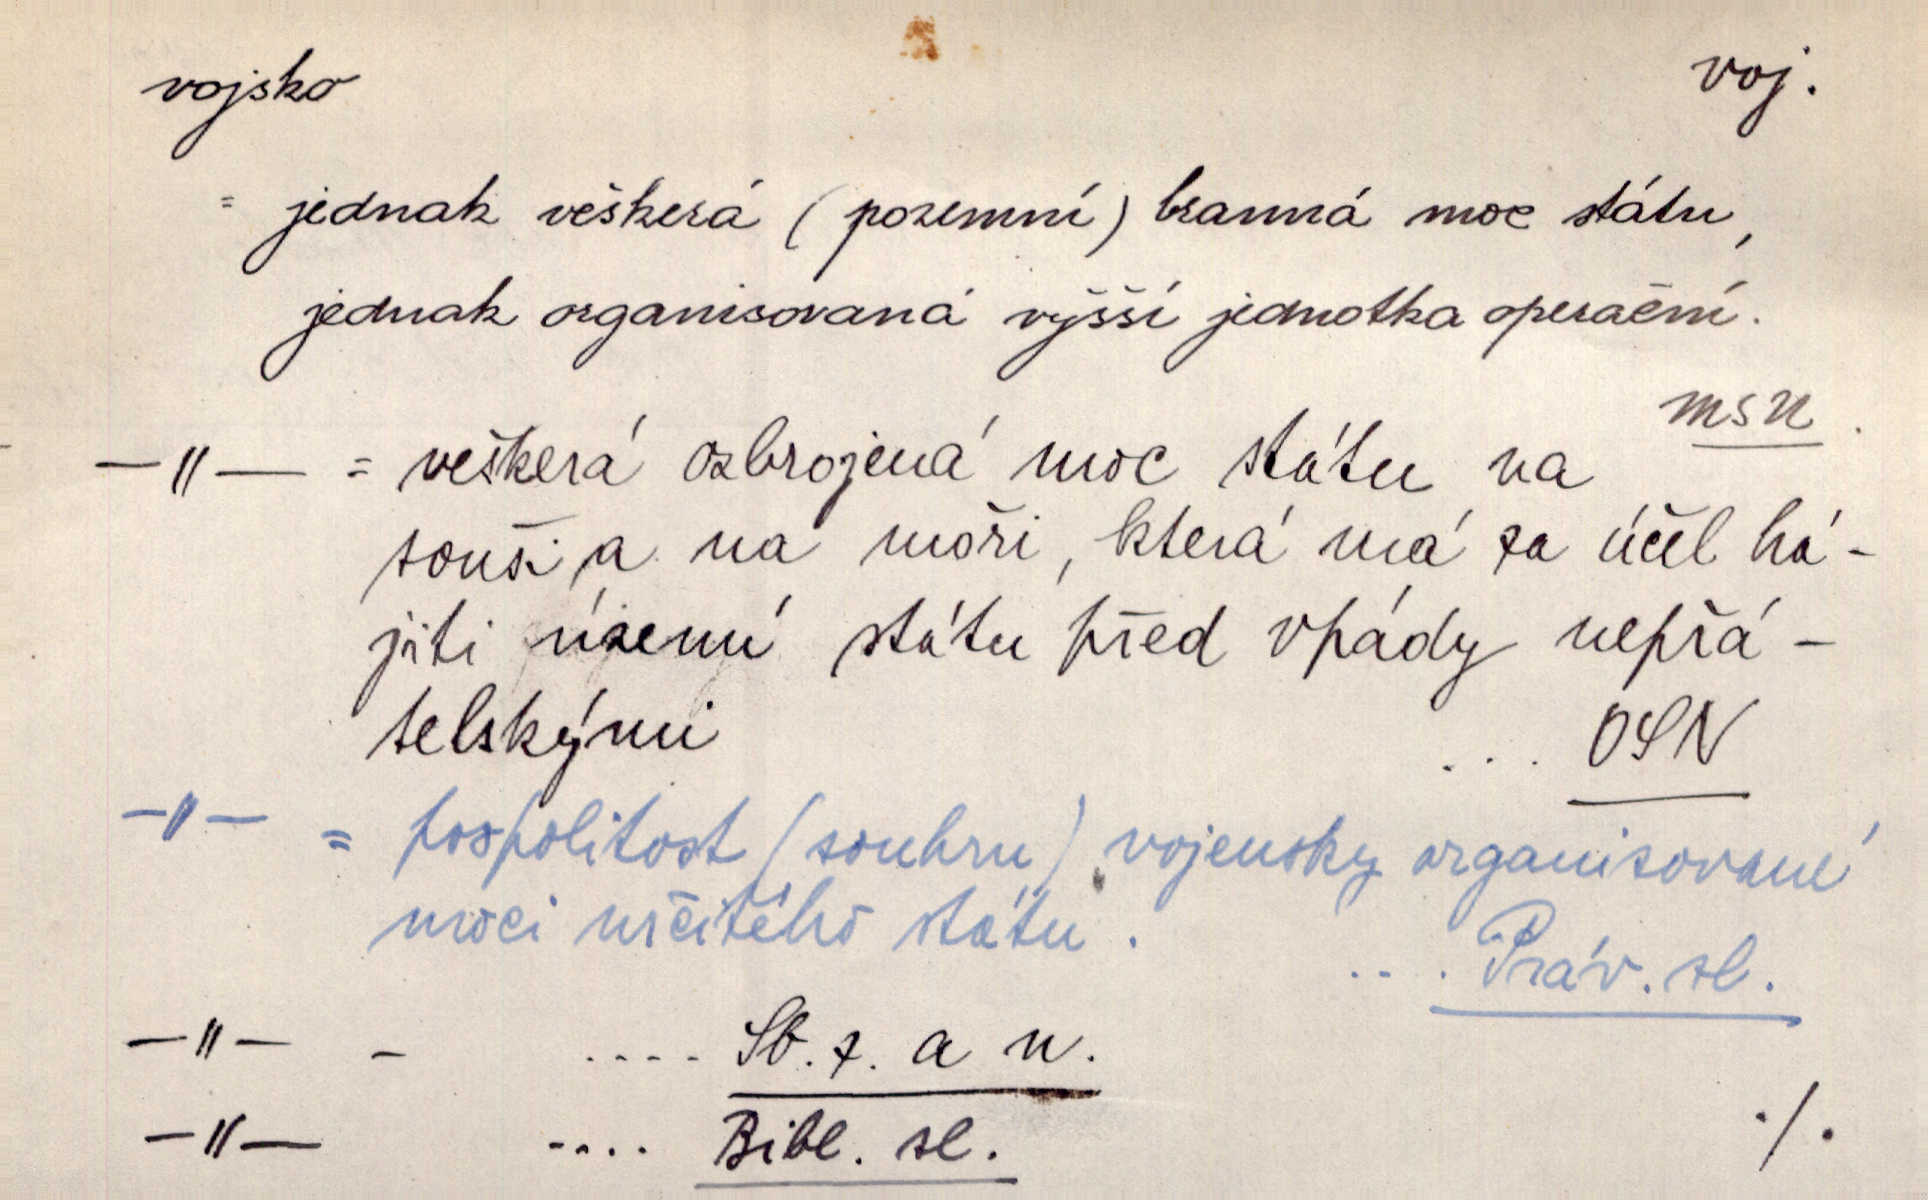 vojsko voj.
= jednak veškerá (pozemní) branná moc státu,
jednak organisovaná vyšší jednotka operační.
MSN
—〃— = veškerá ozbrojená moc státu na
souši a na moři, která má za účel há-
jiti území státu před vpády nepřá-
telskými ... OSN
—〃— = pospolitost (souhrn) vojensky organisované
moci určitého státu. .... Práv. sl.
—〃— - .... Sb. z. a n.
—〃— .... Bibl. sl. ./.